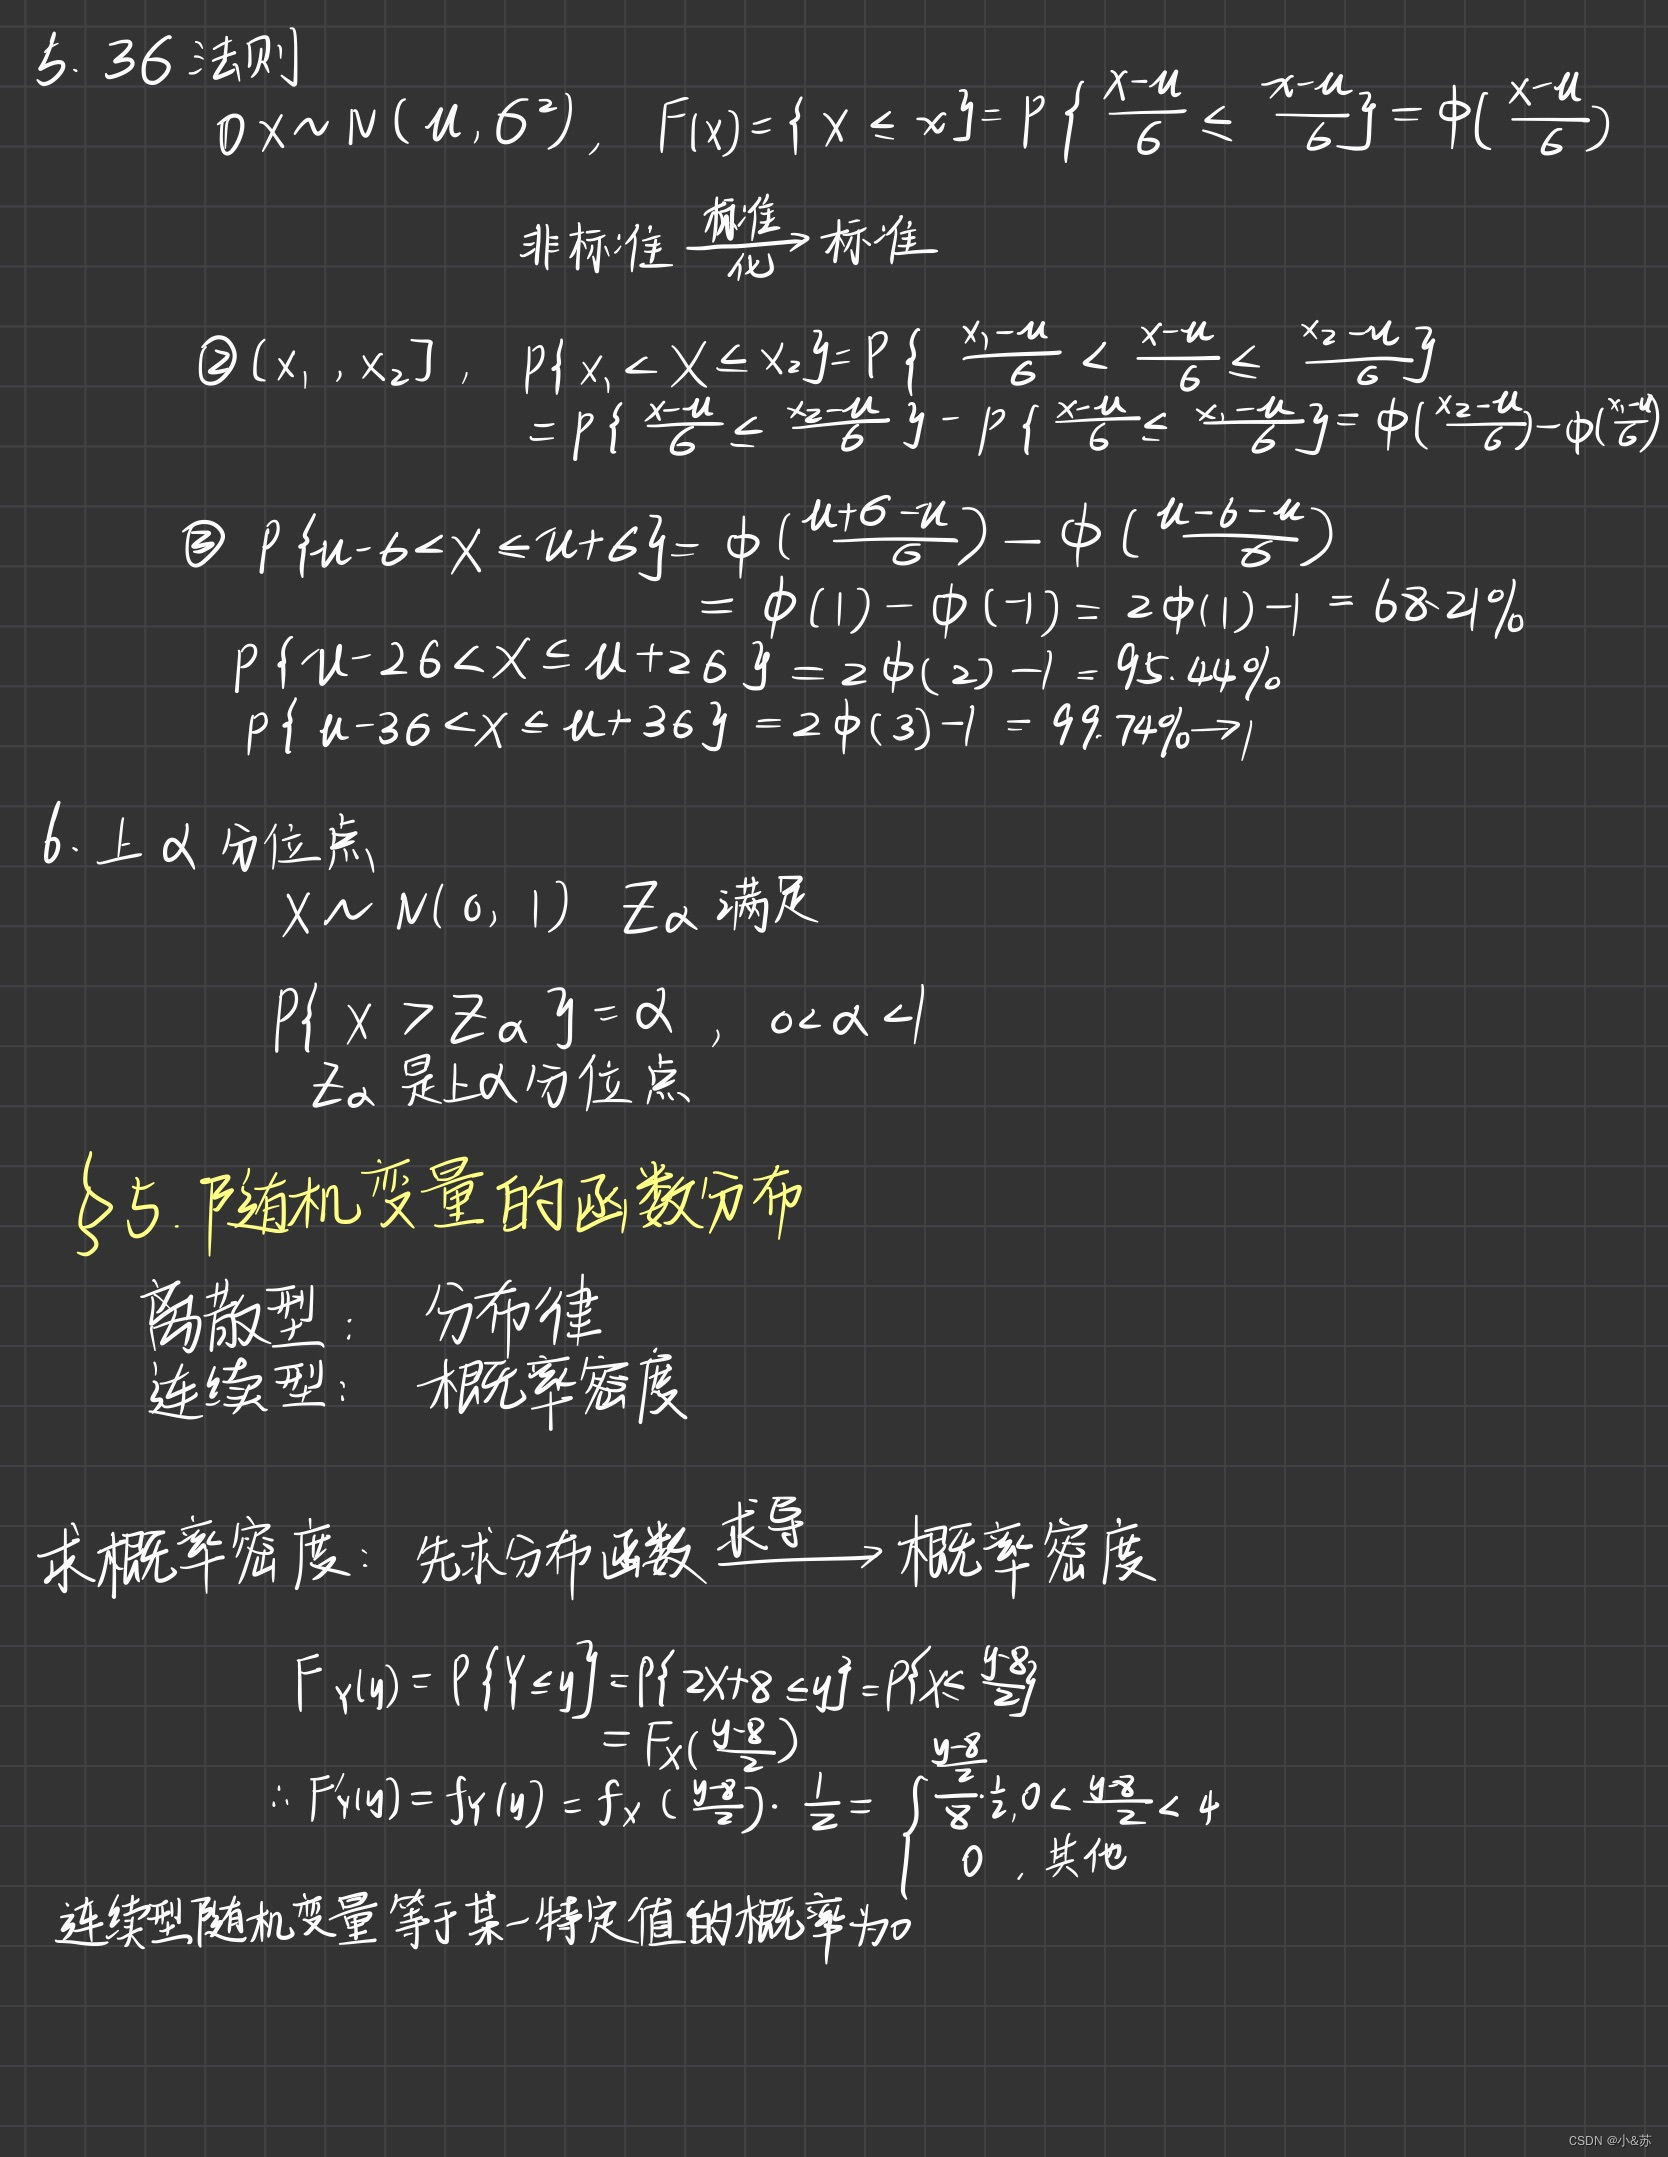 5. 3σ法则
① X~N(μ, σ²), F(x)={X ≤ x}=P{(X-μ)/σ ≤ (x-μ)/σ}=Φ((x-μ)/σ)
非标准 —标准化→ 标准
② (x₁, x₂], P{x₁<X≤x₂}=P{(x₁-μ)/σ < (x-μ)/σ ≤ (x₂-μ)/σ}
=P{(x-μ)/σ ≤ (x₂-μ)/σ}-P{(x-μ)/σ ≤ (x₁-μ)/σ}=Φ((x₂-μ)/σ)-Φ((x₁-μ)/σ)
③ P{μ-σ<X≤μ+σ}=Φ((μ+σ-μ)/σ)-Φ((μ-σ-μ)/σ)
=Φ(1)-Φ(-1)=2Φ(1)-1=68.21%
P{μ-2σ<X≤μ+2σ}=2Φ(2)-1=95.44%
P{μ-3σ<X≤μ+3σ}=2Φ(3)-1=99.74%→1
6. 上α分位点
X~N(0, 1) Zα 满足
P{X>Zα}=α, 0<α<1
Zα 是上α分位点
§5. 随机变量的函数分布
离散型: 分布律
连续型: 概率密度
求概率密度: 先求分布函数 —求导→ 概率密度
F_Y(y)=P{Y≤y}=P{2X+8≤y}=P{X≤(y-8)/2}
=F_X((y-8)/2)
∴ F'_Y(y)=f_Y(y)=f_X((y-8)/2)·1/2={((y-8)/2)/8·1/2, 0<(y-8)/2<4
0, 其他
连续型随机变量等于某一特定值的概率为0
CSDN @小&苏